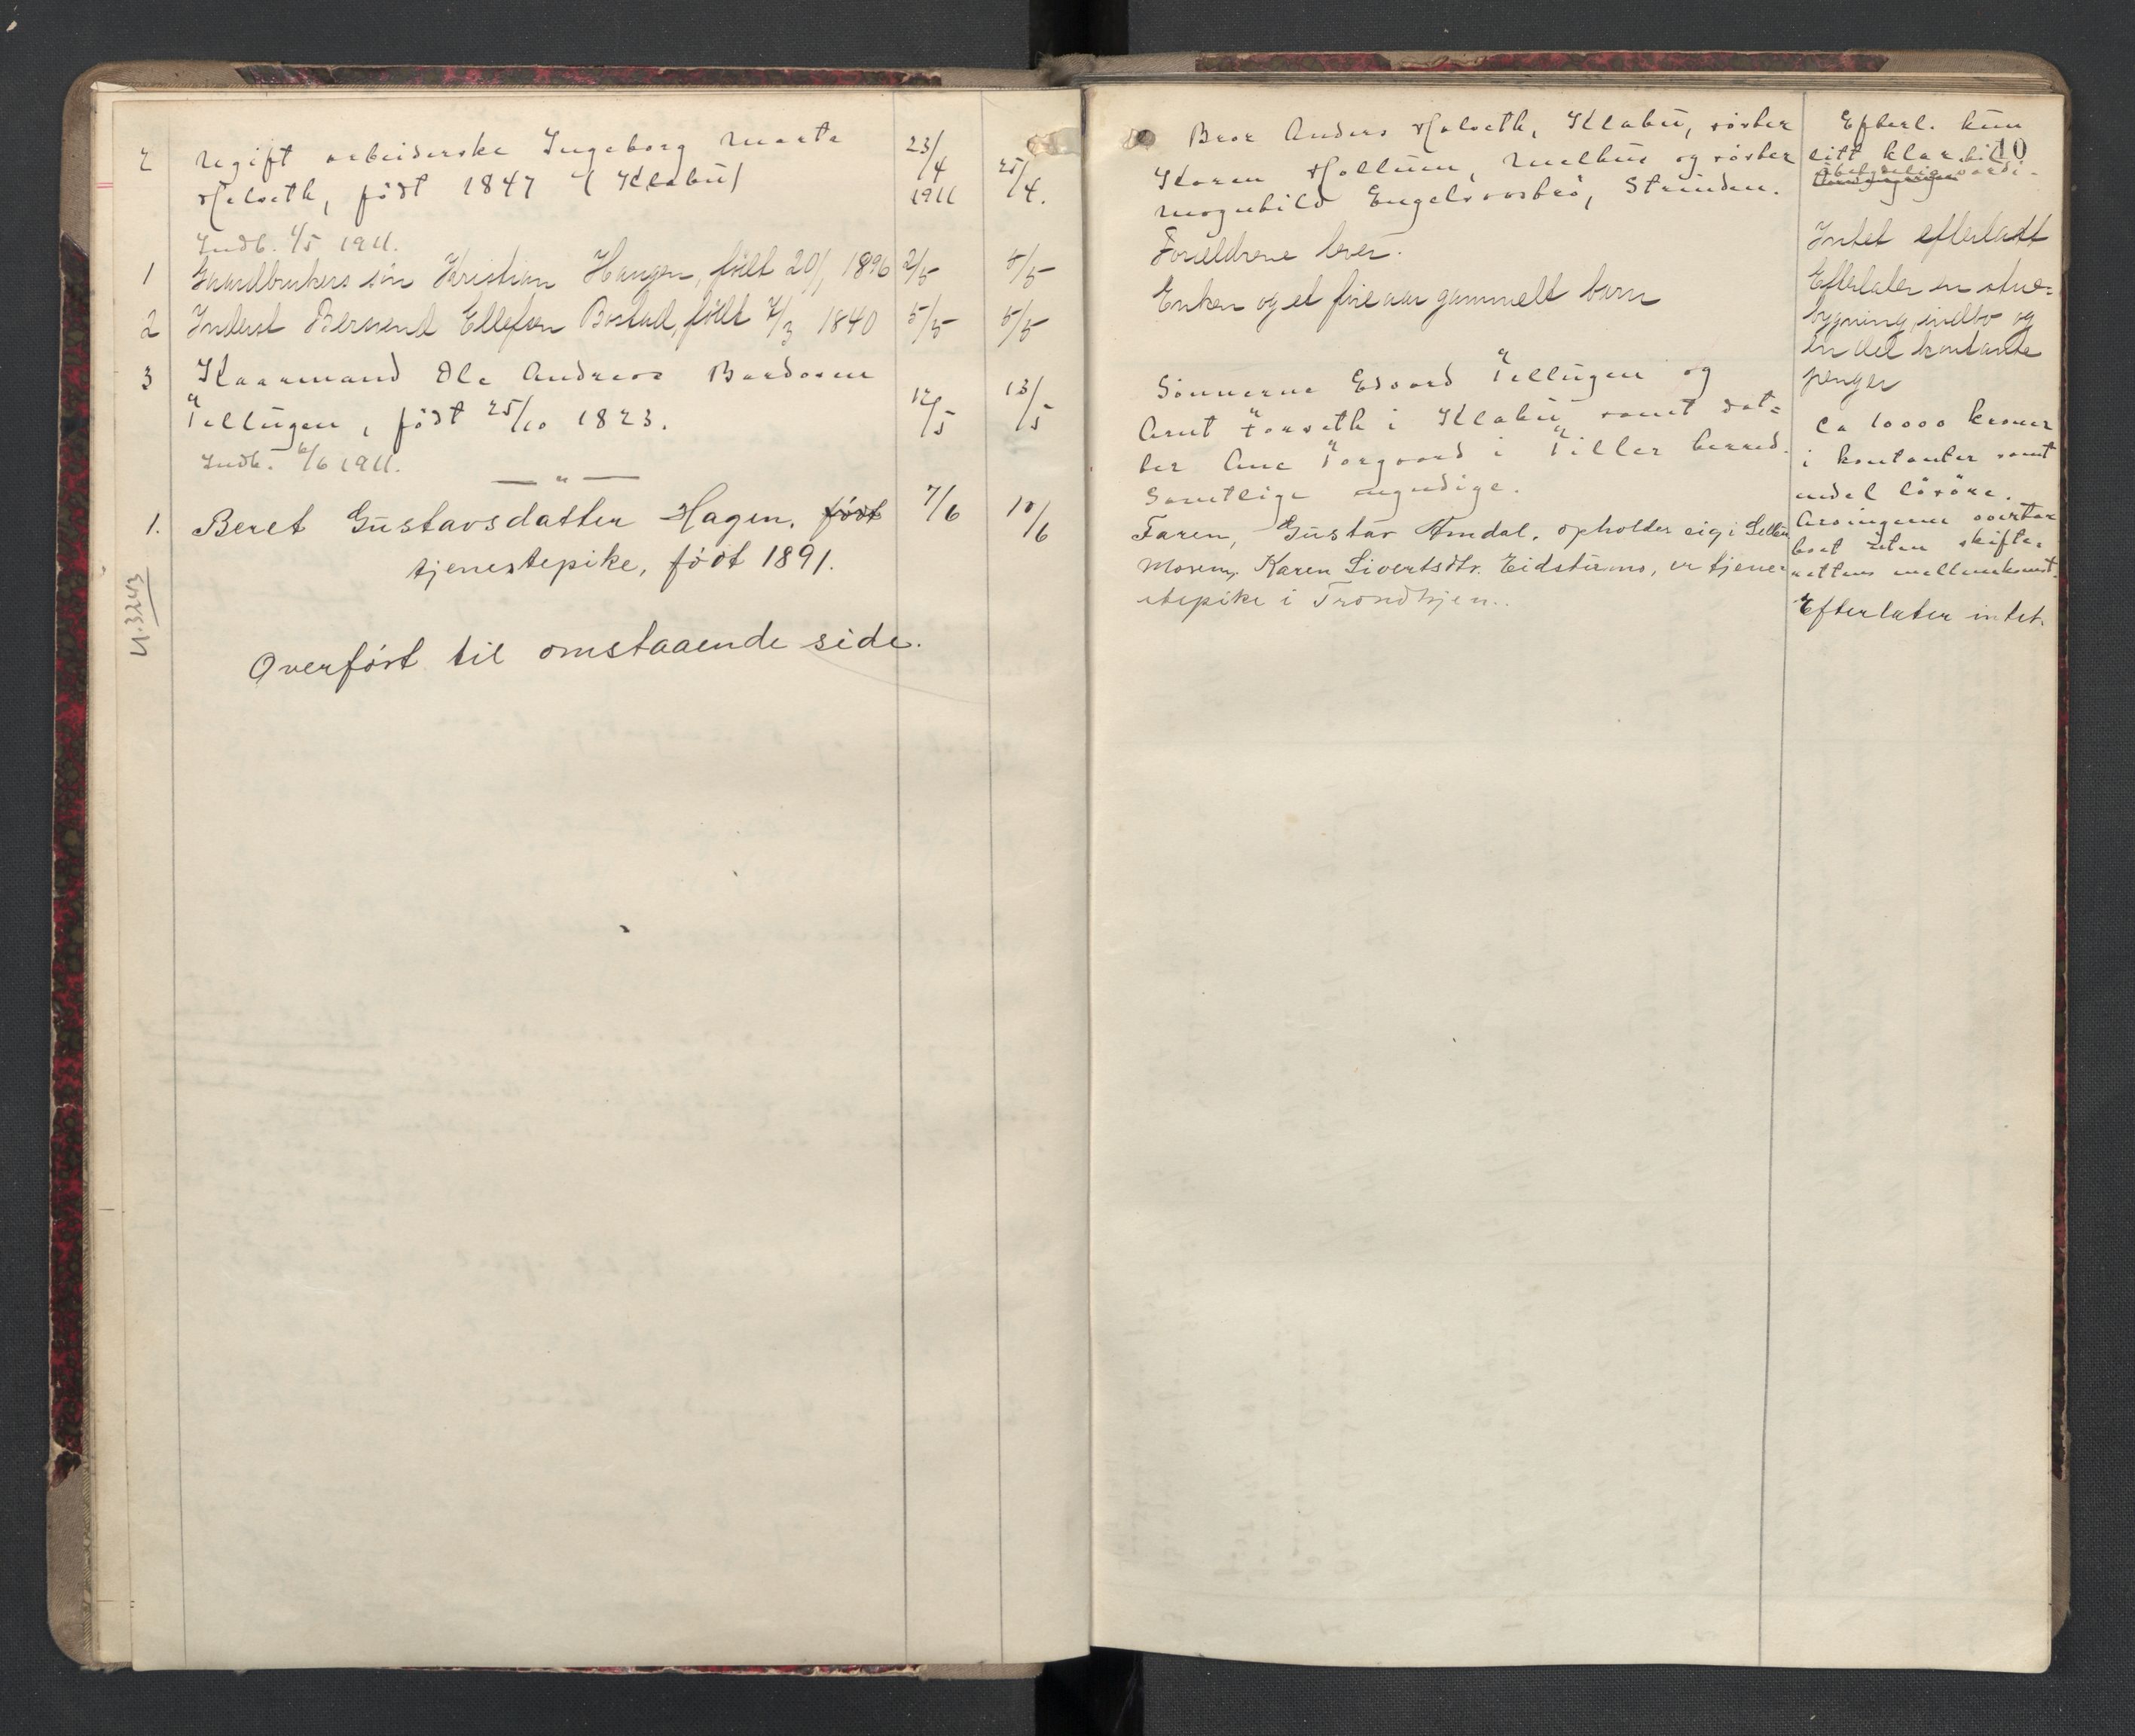 2 Ugift arbeiderske Ingeborg Marta 23/4 1911 25/4.
Halseth, født 1847 (Klæbu)
Indb. 1/5 1911.
1 Gaardbrukers søn Kristian Haugen, født 20/1 1896 2/5 5/5
2 Inderst Bersvend Ellefsen Bostad, født 7/3 1840 5/5 5/5
3 Kaarmand Ole Andreas Baardsen 12/5 13/5
Tellugen, født 25/10 1823.
Indb. 6/6 1911.
— " —
1. Beret Gustavsdatter Hagen, født 7/6 10/6
tjenestepike, født 1891.
U.3243
Overført til omstaaende side.
10
Bror Anders Halseth, Klæbu, søster
Karen Hollum, Melhus og søster
Magnhild Engelsaasbrø, Strinden.
Forældrene lever.
Enken og et fire aar gammelt barn
Sønnerne Edvard Tellugen og
Arnt Forseth i Klæbu samt dat=
ter Ane Torgaard i Tiller herred.
Samtlige myndige.
Faren, Gustav Amdal, opholder sig i
Moren, Karen Sivertsdtr. Eidstumo, er tjene-
stepike i Trondhjem.
Efterl. kun
litt klær til
ubetydelig værdi.
Intet efterlatt
Efterlater en stue=
bygning, indbo og
en del kontante
penger
Ca 10000 kroner
i kontanter samt
endel løsøre.
Arvingerne overtar
boet uten skifte-
rettens mellemkomst.
Efterlater intet.